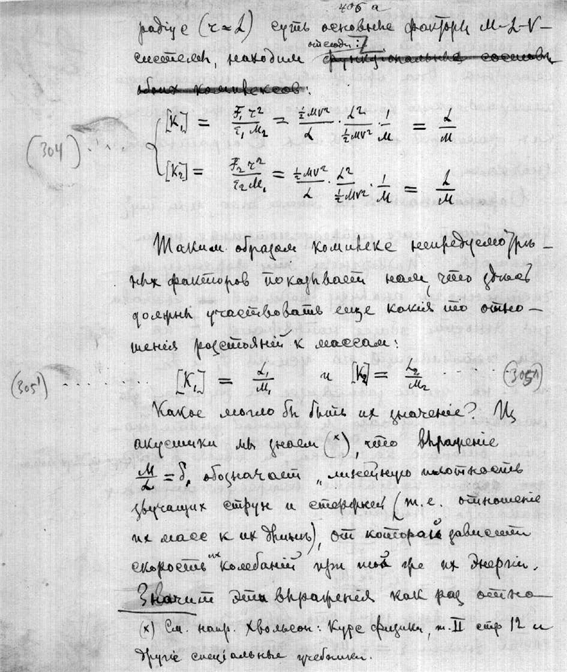 405 a
радіусе (r = L) суть основные факторы M-L-V-
отсюда:
системы, находим функціональные составы
обоих комплексов:
(304) .... [K₁] = F₁r²/τ₁M₂ = ½MV²/L · L²/½MV² · 1/M = L/M
[K₂] = F₂r²/τ₂M₁ = ½MV²/L · L²/½MV² · 1/M = L/M
Таким образом комплекс
ных факторов показывает нам, что здесь
должны участвовать еще какія то отно-
шенія разстояній к массам:
(305) ........ [K₁] = L₁/M₁ и [K₂] = L₂/M₂ ..... (305)
Какое могло бы быть их значеніе? Из
акустики мы знаем (x), что выраженіе
M/L = δ, обозначает „линейную плотность
звучащих струн и стержней (т. е. отношеніе
их масс к их длинѣ), от которой зависит
скорость их колебаній при той же их энергіи.
Значит эти выраженія как раз относ-
(x) См. напр. Хвольсон: Курс физики, т. II стр 12 и
другіе спеціальные учебники.